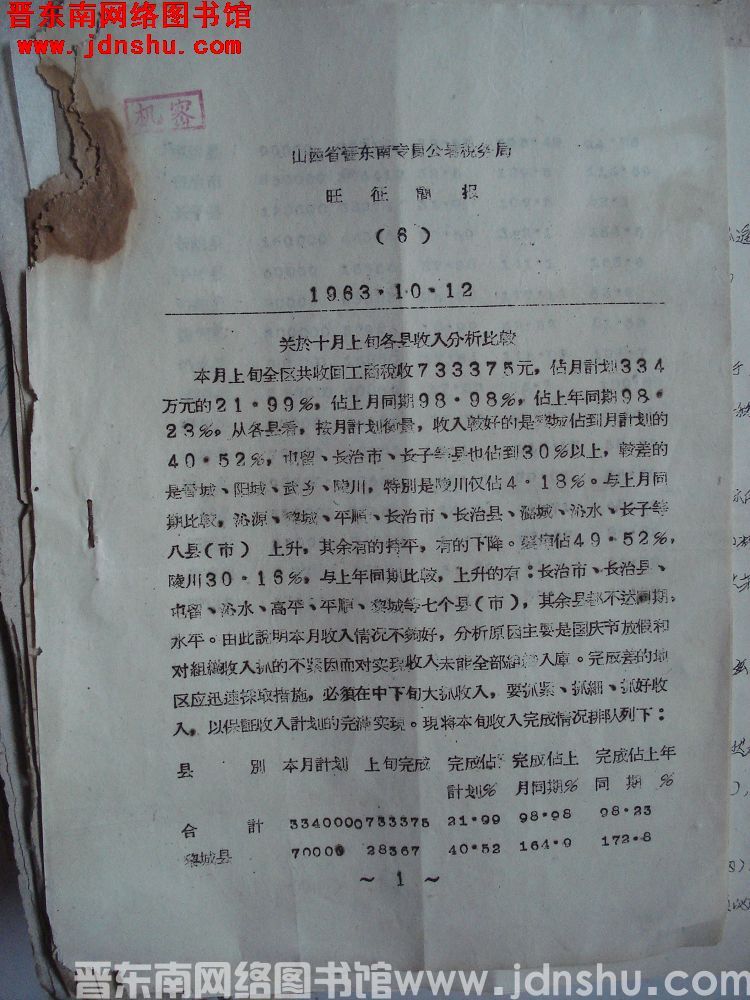 晋东南网络图书馆
www.jdnshu.com
机密
山西省晋东南专员公署税务局
旺征简报
(6)
1963·10·12
关於十月上旬各县收入分析比較
本月上旬全区共收回工商税收733375元，佔月計划334
万元的21·99%，佔上月同期98·98%，佔上年同期98·
23%。从各县看，按月計划衡量，收入較好的是黎城佔到月計划的
40·52%，屯留、长治市、长子等县也佔到30%以上，較差的
是晋城、阳城、武乡、陵川，特別是陵川仅佔4·18%。与上月同
期比較，沁源、黎城、平順、长治市、长治县、潞城、沁水、长子等
八县(市) 上升，其余有的持平，有的下降。佔49·52%，
陵川30·16%，与上年同期比較，上升的有：长治市、长治县、
屯留、沁水、高平、平順、黎城等七个县(市)，其余县都不达同期
水平。由此說明本月收入情况不够好，分析原因主要是国庆节放假和
对組織收入抓的不紧因而对实现收入未能全部組織入庫。完成差的地
区应迅速採取措施，必須在中下旬大抓收入，要抓紧、抓細、抓好收
入，以保証收入計划的完滿实现。現将本旬收入完成情况排队列下：
县 別 本月計划 上旬完成 完成佔 完成佔上 完成佔上年
計划% 月同期% 同期 %
合 計 3340000 733375 21·99 98·98 98·23
黎城县 70000 28367 40·52 164·9 172·8
~ 1 ~
晋东南网络图书馆www.jdnshu.com